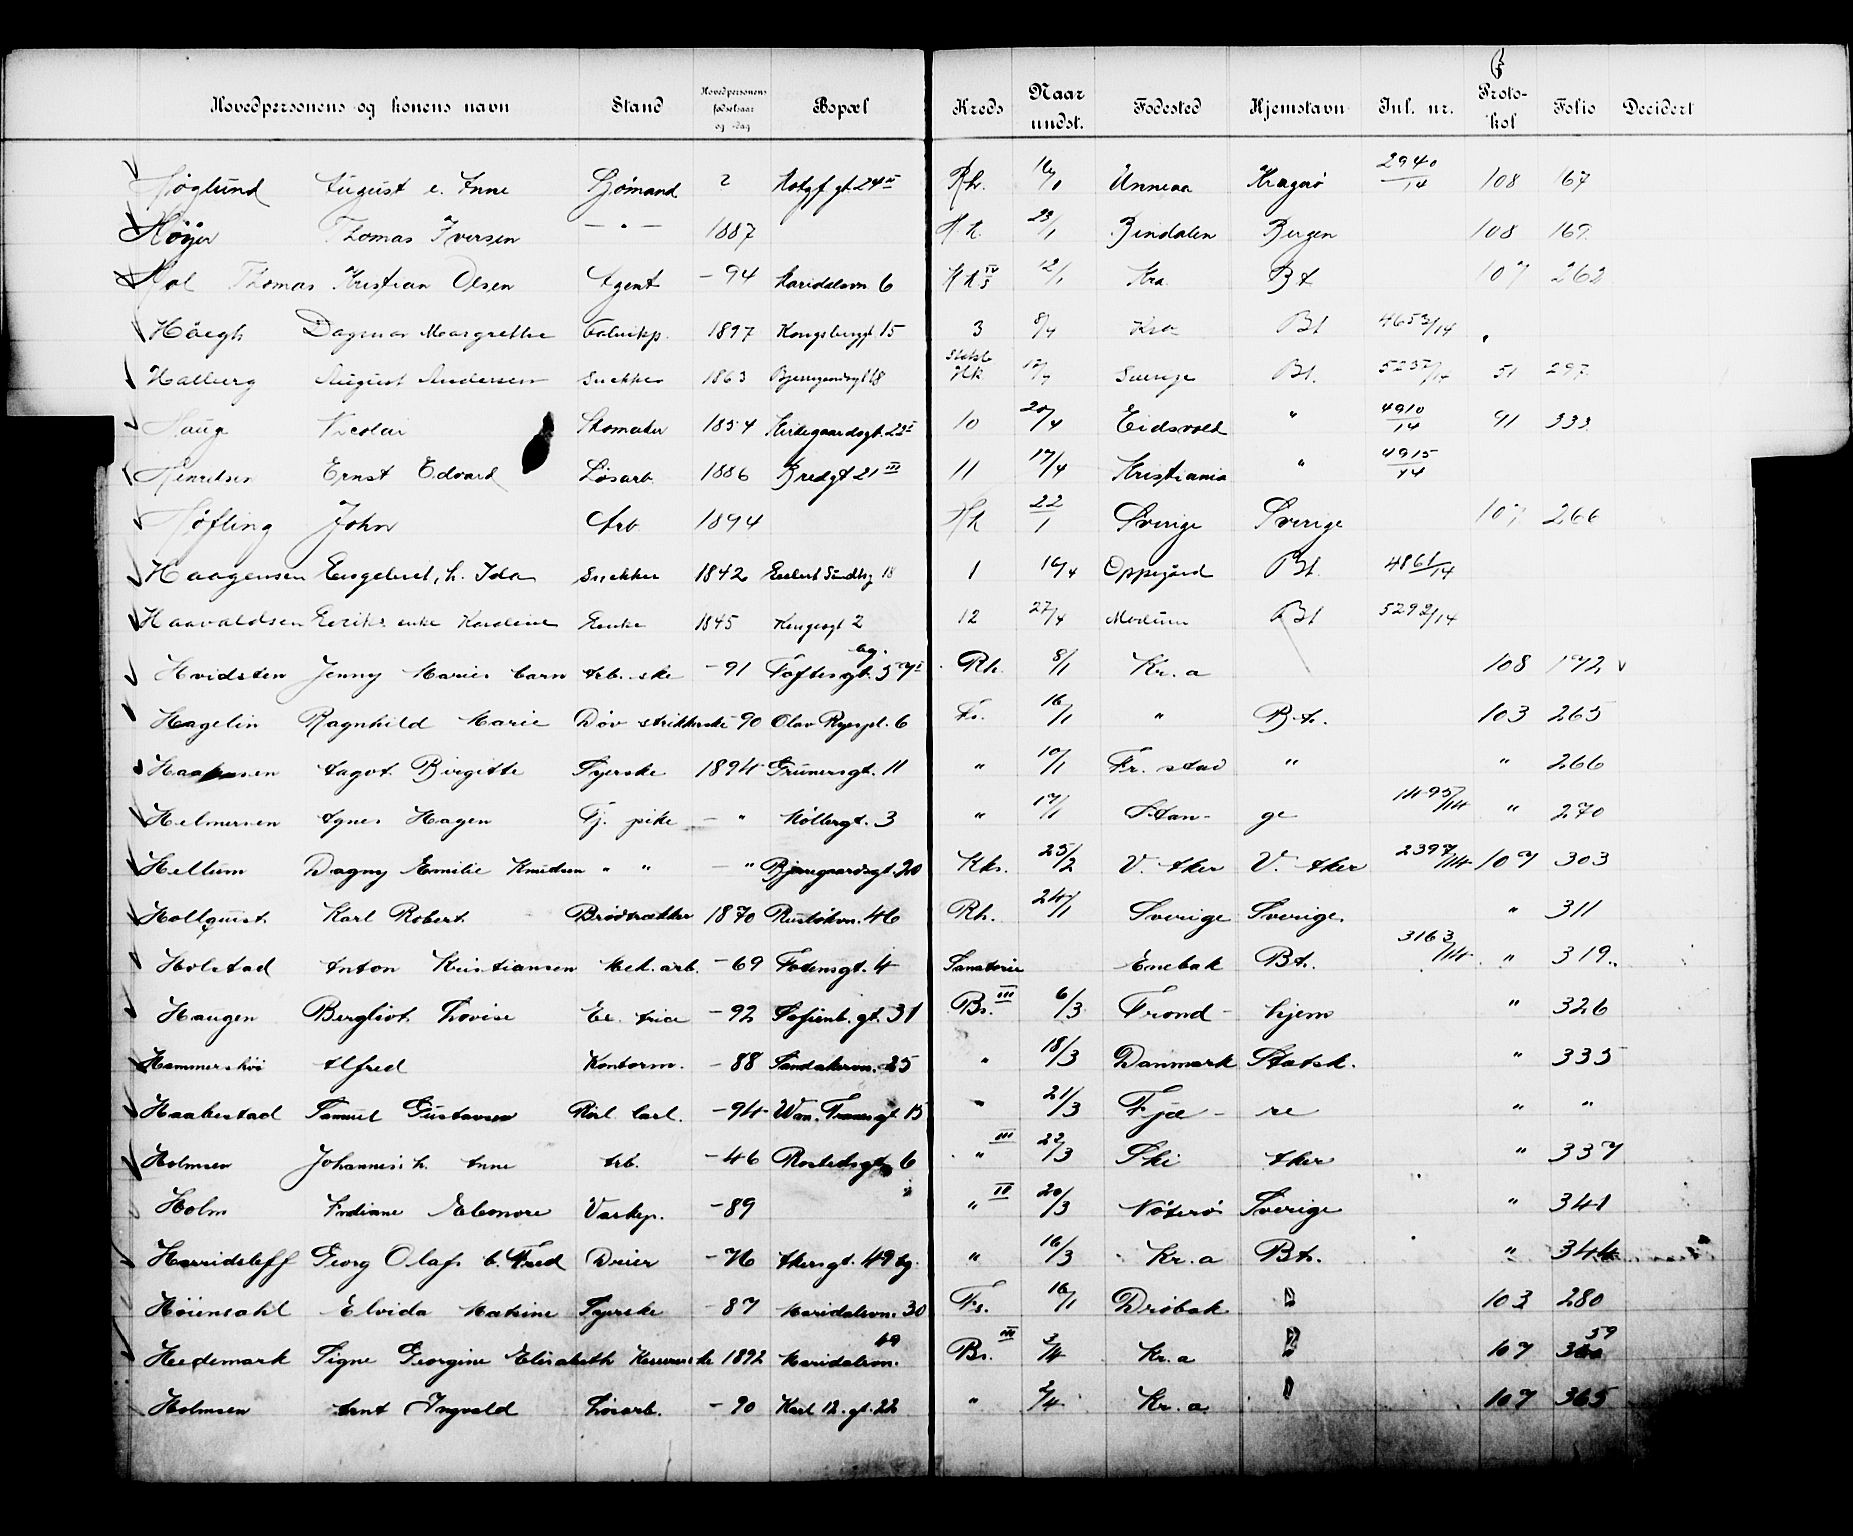 Hovedpersonens og konens navn Stand Hovedpersonens fødselsaar og -dag Bopæl Kreds Naar undst. Fødested Hjemstavn Inl. nr. Proto- kol Folio Decidert
Høglund August e. Anne Sjømand 2 Kra 2940/14 108 167
Høyer Thomas Iversen — " — 1887 23/1 Bindalen Bergen 108 169
Hol Thomas Kristian Olsen Agent - 94 Maridalsvn 6 12/1 Kra. Bt 107 262
Høegh Dagmar Margrethe Fabrikp. 1897 Kongsbergt 15 3 8/4 Kra Bt 4653/14 "
Halberg August Andersen Snekker 1863 Sverige Bt. 5232/14 51 297
Haug Nicolai Skomaker 1854 Kirkegaardsgt. 22 II 10 20/4 Eidsvold " 4910/14 91 333
Henriksen Ernst Edvard Løsarb. 1886 Bredgt 21 III 11 17/4 Kristiania " 4915/14
Høfling John Arb 1894 22/1 Sverige Sverige 107 266
Haagensen Engebret, h. Ida Snekker 1842 Eilert Sundtsg 18 1 16/4 Oppegård Bt. 4861/14
Haavaldsen Eriks enke Karoline Enke 1845 Kingosgt 2 12 27/4 Modum Bt 5292/14
Hvidsten Jenny Marie barn Arb. ske - 91 Toftesgt. 57 II bg. Rh. 8/1 Kr.a 108 192 v
Hagelin Ragnhild Marie Døv strikkerske 90 Olav Ryespl. 6 Fs. 16/1 " Bt. 103 265
Haakensen Aagot Birgitte Syerske 1894 Grünersgt. 11 " 10/1 Fr. stad " " 266
Helmersen Agnes Hagen Tj. pike — " Møllergt. 3 " 17/1 Stan- ge 1495/14 " 270
Hellum Dagny Emilie Knudsen " " — " Bjerregaardsgt. 20 Kks. 25/2 V. Aker V. Aker 2397/14 107 303
Hollquist Karl Robert Brødtrækker 1870 Ruseløkvn. 46 Rh. 24/1 Sverige Sverige. " 311
Holstad Anton Kristiansen Mek. arb. - 69 Totensgt. 4 Sanatorie Enebak Bt. 3163/14 " 319
Haugen Bergliot Lovise - 92 Sofienb. gt. 31 Bs. III 6/3 Trond- hjem " 326
Hammershøi Alfred Kontorm. - 88 Sandakervn. 25 " 18/3 Danmark Statsk. " 335
Haabestad Samuel Gustavsen - 94 Wm. Thranesgt. 15 " 21/3 Fjæ- re " "
Holmsen Johannes h. Anne Arb. - 46 Rostedsgt. 6 " III 22/3 Ski Aker " 337
Holm Indiane Eleonore Vaskep. - 89 " II 20/3 Nøterø Sverige " 341
Havridsleff Georg Olaf b. Fred Dreier - 76 Akersgt. 49 bg. " 16/3 Kr.a Bt. " 344
Høiensahl Elvida Maxine Syerske - 87 Maridalsvn. 30 Fs. 16/1 Drøbak " 103 280
Hedemark Signe Georgine Elisabeth 1892 Maridalsvn. 69 Bs. III 3/4 Kr.a " 107 359
Holmsen Arnt Ingvald Løsarb. - 90 Karl 12. gt. 22 " 2/4 Kr.a. " 107 365